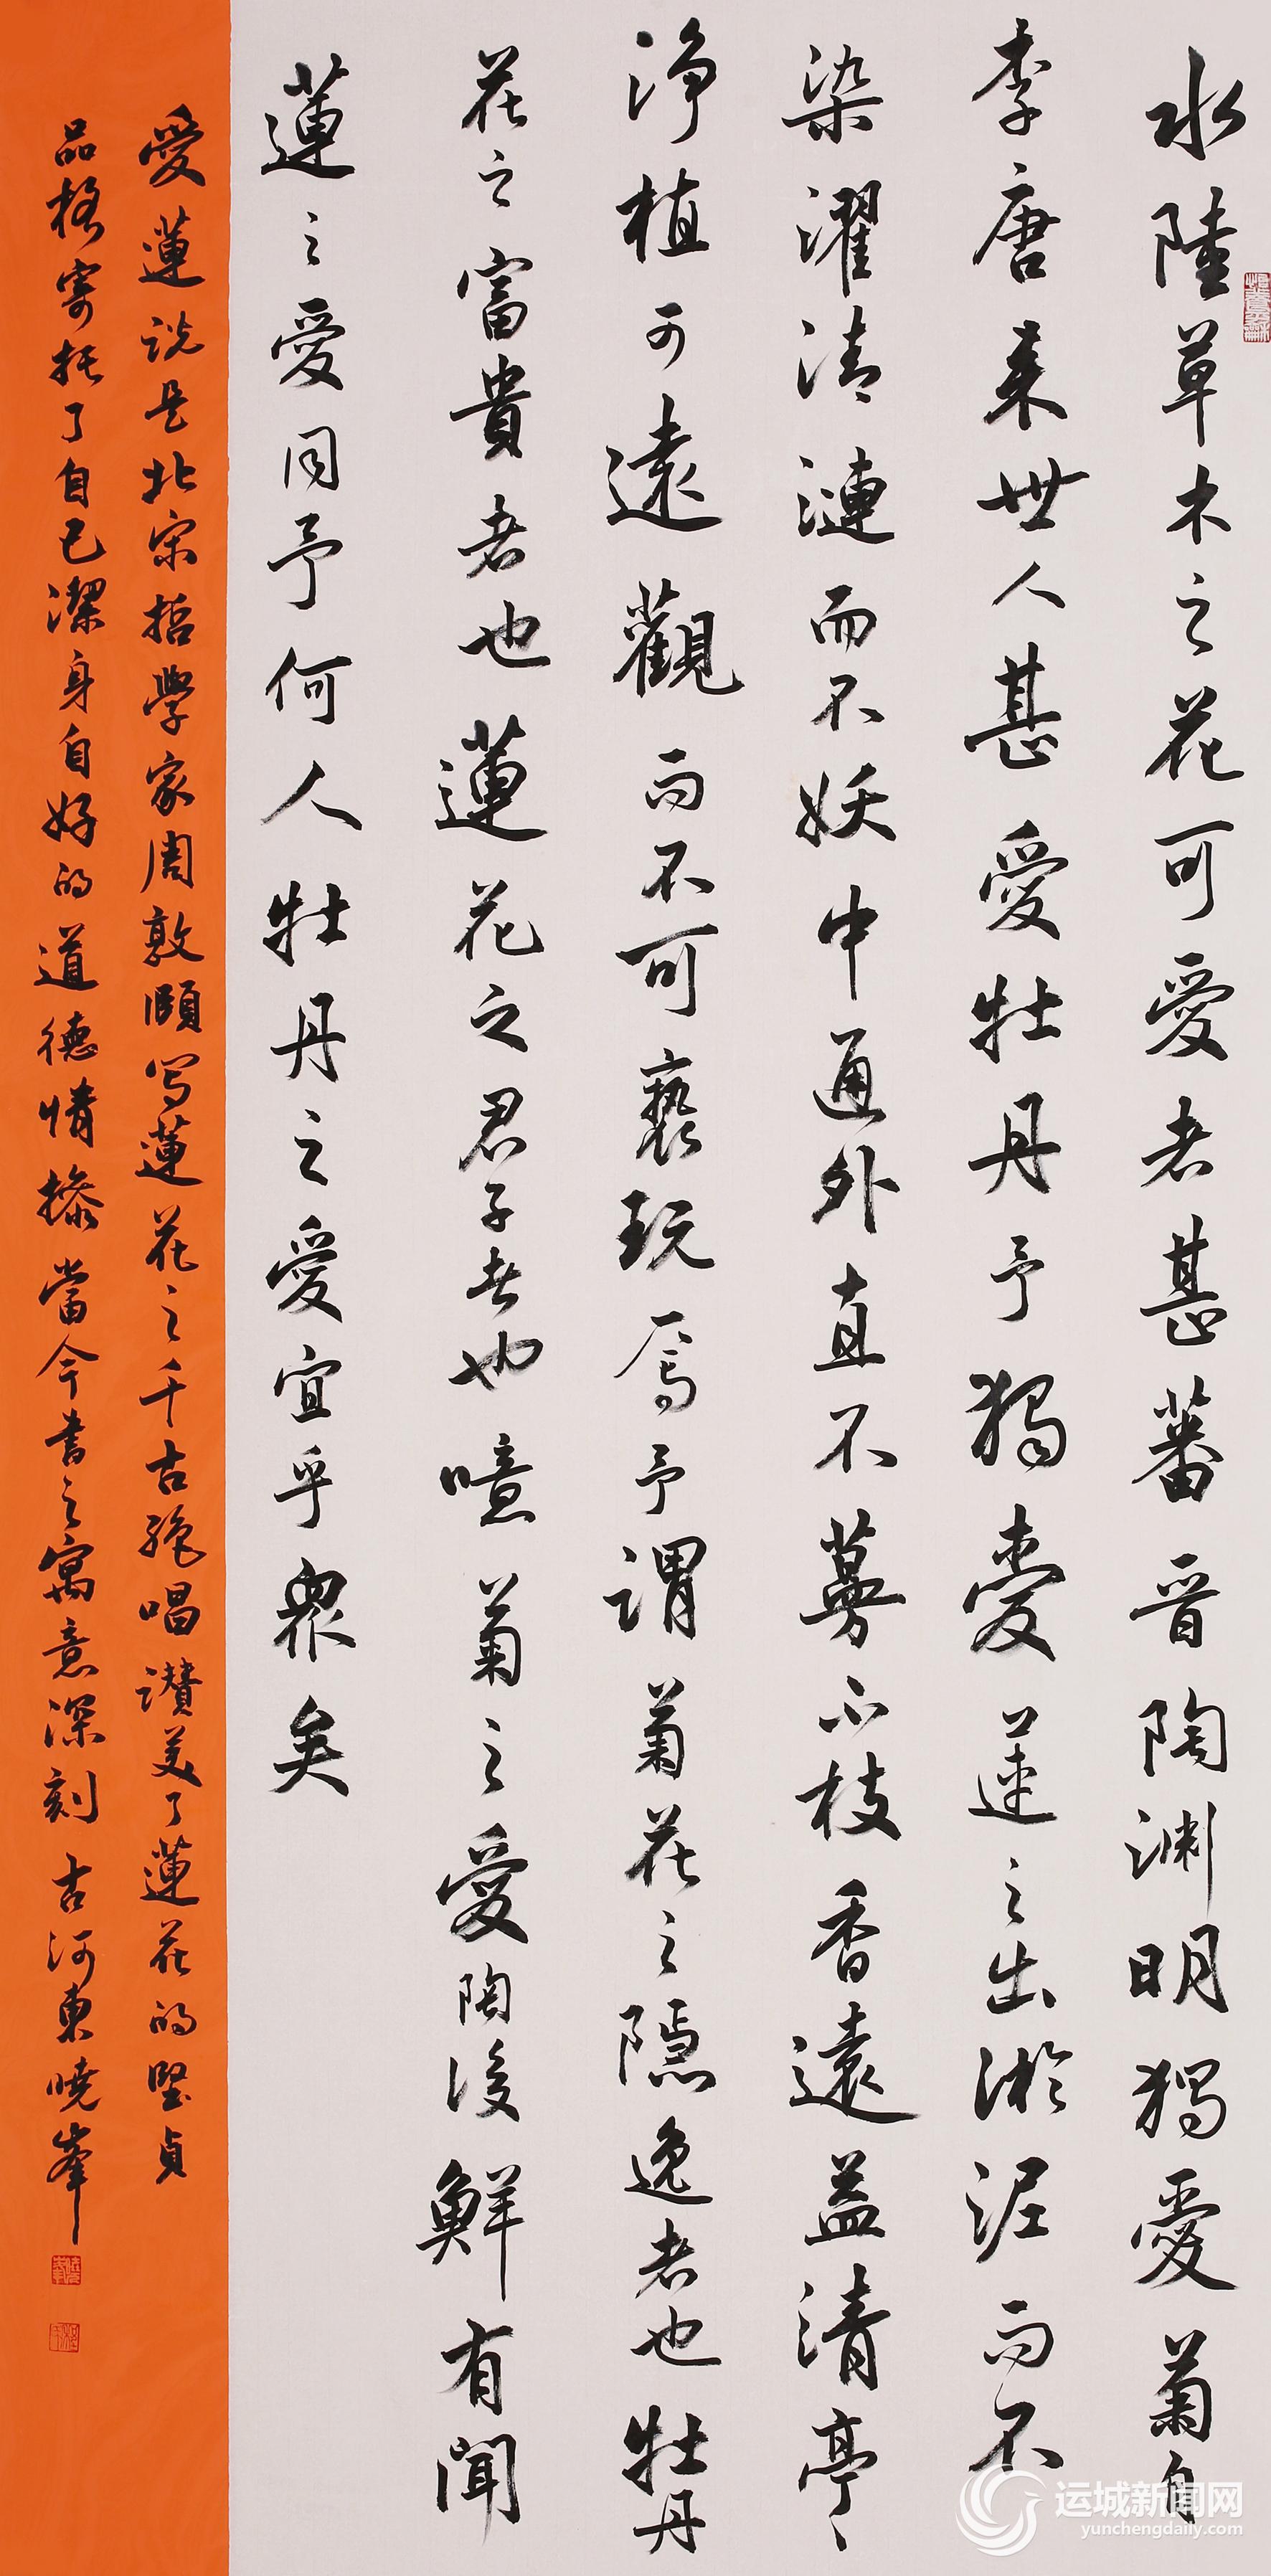 水陸草木之花可愛者甚蕃晉陶淵明獨愛菊自
李唐来世人甚愛牡丹予獨愛蓮之出淤泥而不
染濯清漣而不妖中通外直不蔓不枝香遠益清亭〻
淨植可遠觀而不可褻玩焉予謂菊花之隱逸者也牡丹
花之富貴者也蓮花之君子者也噫菊之愛陶後鮮有聞
蓮之愛同予何人牡丹之愛宜乎眾矣
愛蓮说是北宋哲學家周敦頤写蓮花之千古绝唱讚美了蓮花的堅贞
品格寄托了自己潔身自好的道德情操當今書之寓意深刻古河東曉峯
运城新闻网
yunchengdaily.com